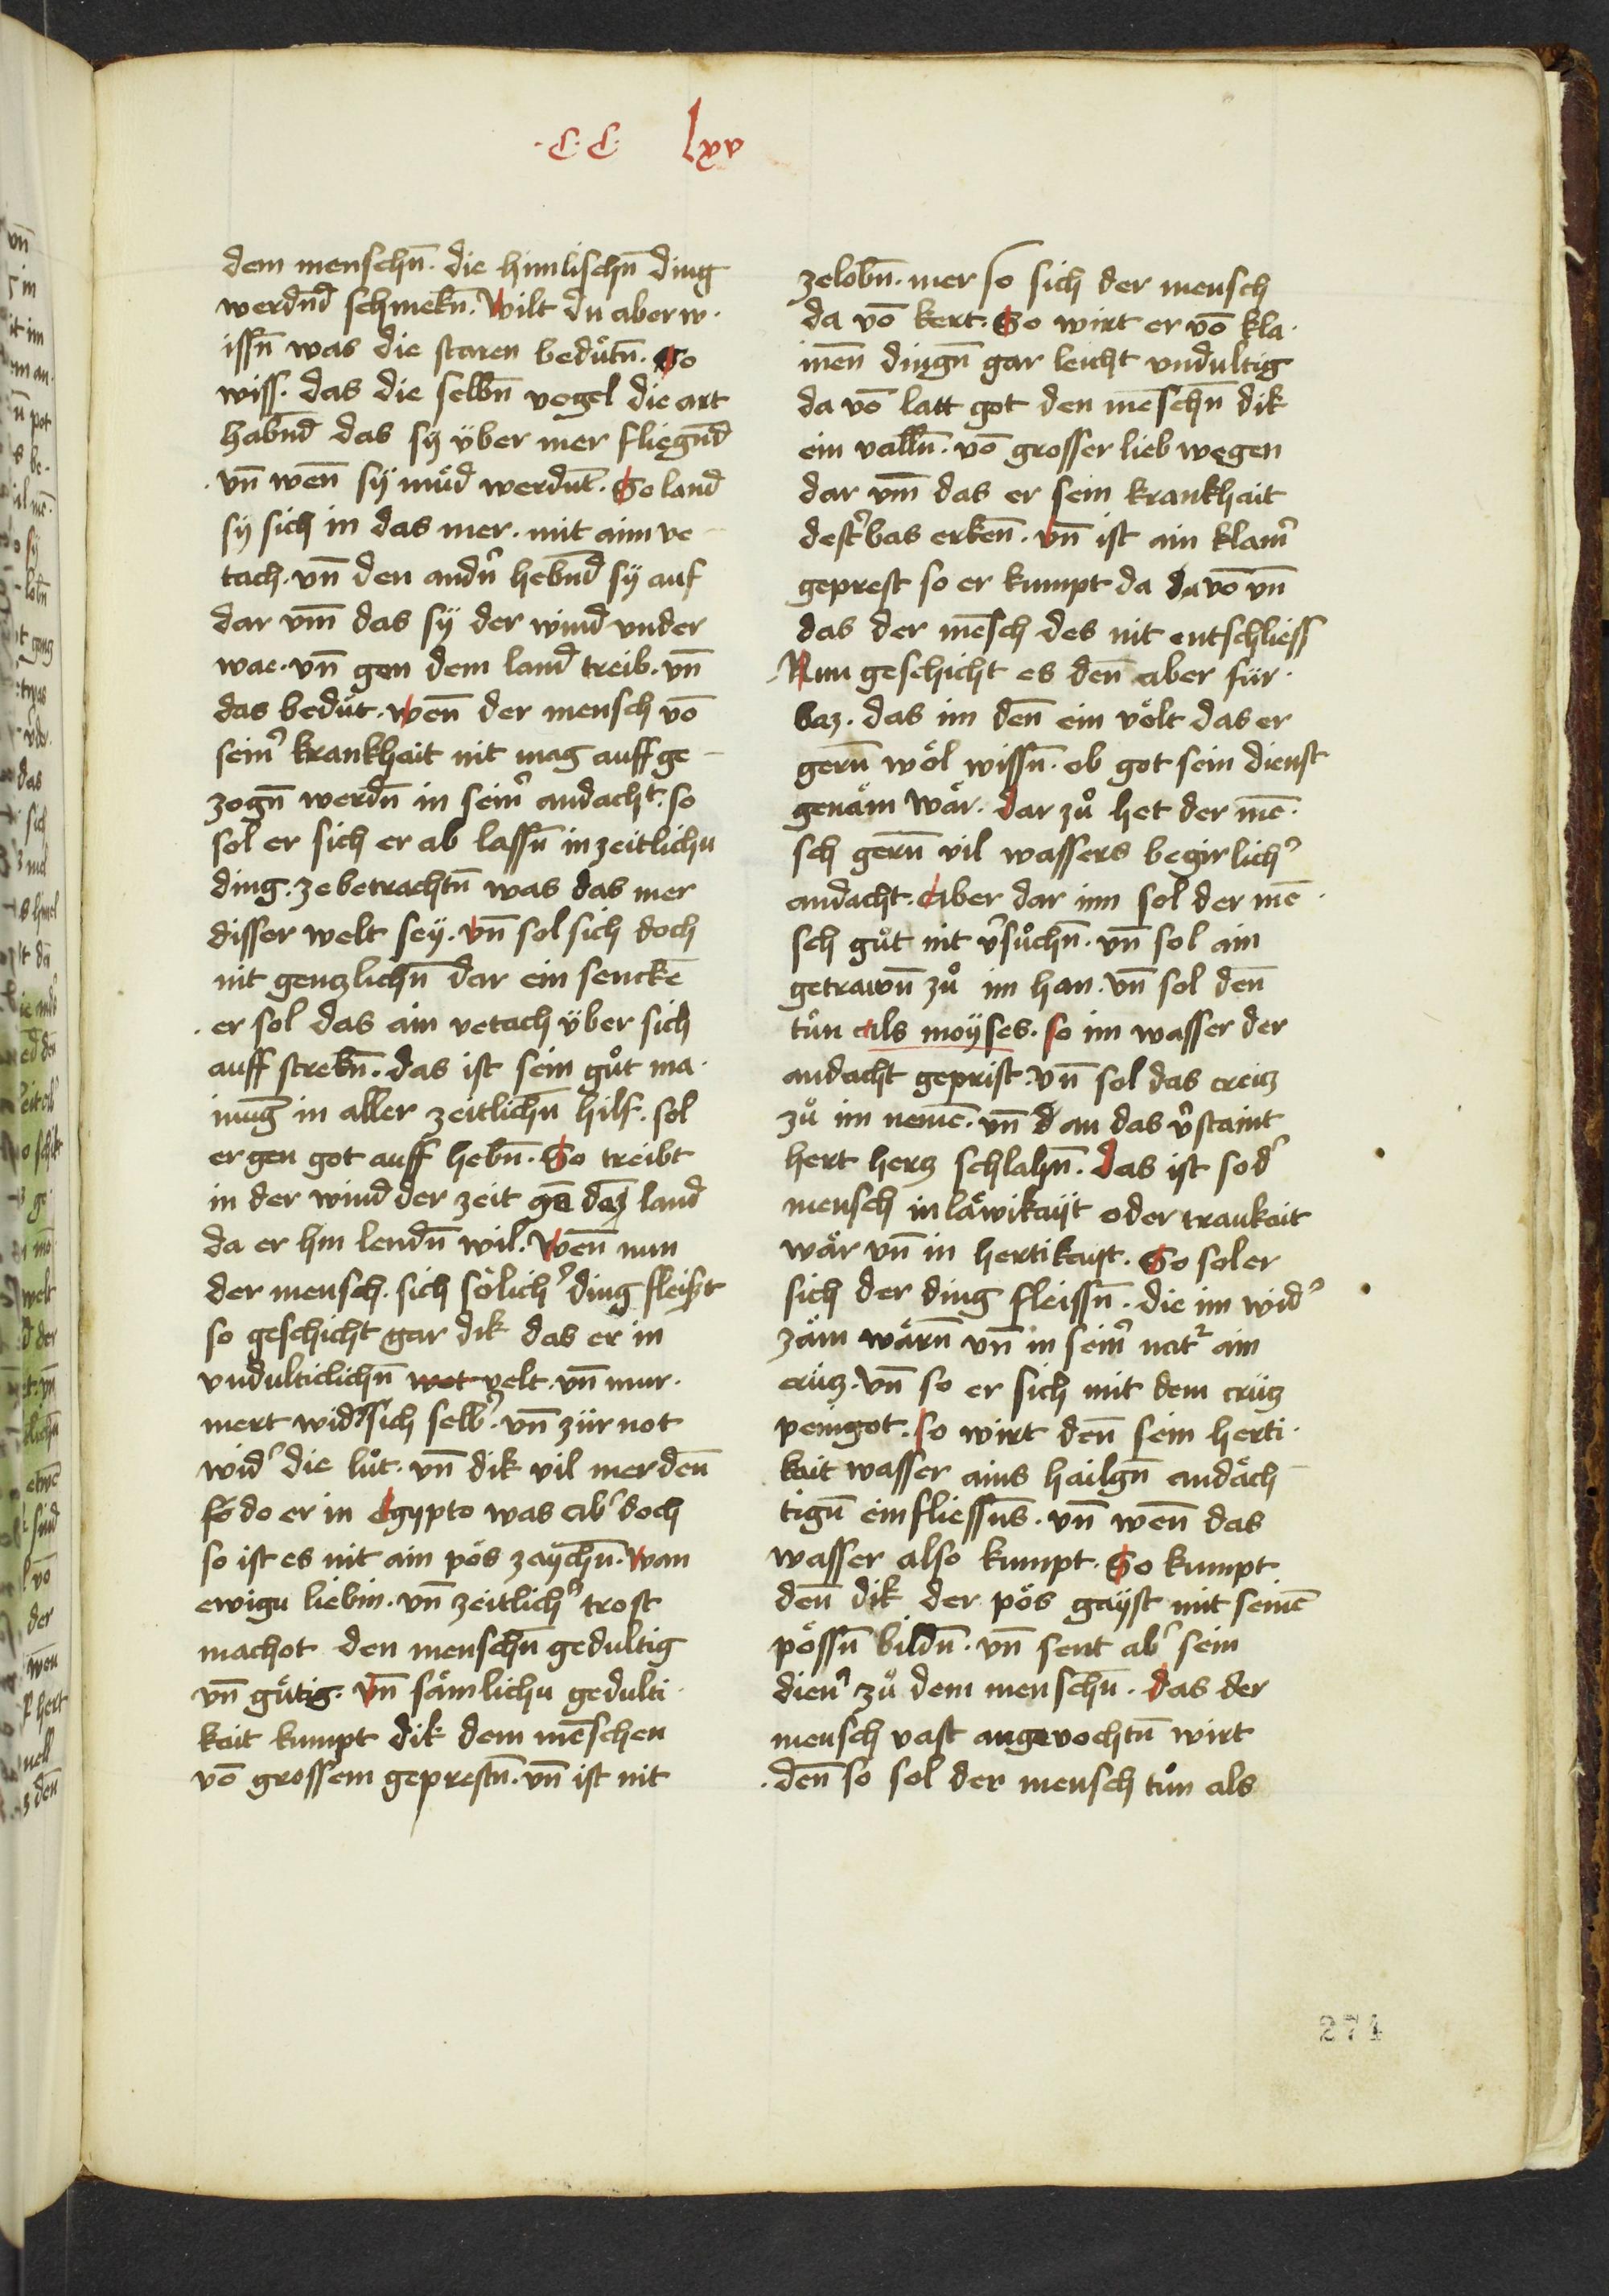 ·C·C· lxv
dem menschn̄· die himlischn̄ ding
werdn̄d schmekn̄· Wilt du aber w·
issn̄ was die staren bedütn̄· So
wiss· das die selbn̄ vogel die art
habn̄d das sy über mer fliegn̄d
·vn̄ wen̄ sÿ müd werdn̄t· So land
sy sich in das mer· mit aim ve-
tach· vn̄ den andn̄ hebn̄d sÿ auf
dar vm̄ das sÿ der wind vnder
wae· vn̄ gen dem land treib· vn̄
das bedüt· wen̄ der mensch vō
seinˀ krankhait nit mag auff ge-
zogn̄ werdn̄ in seinˀ andacht· so
sol er sich er ab lassn̄ in zeitlichu
ding· ze betrachtn̄ was das mer
disser welt sey· vn̄ sol sich doch
nit genczlichn̄ dar ein senckē
·er sol das ain vetach über sich
auff strebn̄· das ist sein gůt ma·
inug in aller zeitlichn̄ hilf· sol
er gen got auff hebn̄· So treibt
in der wind der zeit gē daz land
da er hin lendn̄ wil· Wen̄ nun
der mensch· sich sölichˀ ding fleißt
so geschicht gar dik das er in
vndulticlichn̄ wet velt· vn̄ mur·
mert widˀ sich selbˀ· vn̄ zürnot
widˀ die lüt· vn̄ dik vil mer den̄
fō do er in Egypto was abˀ doch
so ist es nit ain pös zaychn̄· wan
ewigu liebin· vn̄ zeitlichˀ trost
machot den menschn̄ gedultig
vn̄ gütig· Vn̄ sämlichu gedulti·
kait kumpt dik dem mēschen
vō grossem geprestn̄· vn̄ ist nit
zelobn̄· mer so sich der mensch
da vō kert· So wirt er vō kla·
inen̄ dingn̄ gar leicht vndultig
da vō latt got den mēschn̄ dik
ein valln̄· vō grosser lieb wegen
dar vm̄ das er sein krankhait
destˀbas erken̄· vn̄ ist ain klainˀ
geprest so er kumpt da da vō vn̄
das der mēsch des nit entschliess
Nun geschicht es den̄ aber für·
baz· das im den̄ ein völt das er
gern̄ wöl wissn̄· ob got sein dienst
genäm wär· dar zů het der mē·
sch gern̄ vil wassers begirlichˀ
andacht· Aber dar inn sol der mē·
sch gůt nit vˀsůchn̄· vn̄ sol ain
getrawn̄ zů im han· vn̄ sol den̄
tůn als moÿses· so im wasser der
andacht geprist· Vn̄ sol das creicz
zů im nemē· vn̄ d an das vˀstaint
hert hercz schlahn̄· Das ist so dˀ
mensch in läwikaÿt oder traukait
wär vn̄ in hertikaÿt· So sol er
sich der ding fleissn̄· die im widˀ
zäm wärn̄ vn̄ in seinˀ natˀ ain
crücz· Vn̄ so er sich mit dem crücz
peingot· so wirt den̄ sein herti·
kait wasser ains hailgn̄ andäch-
tign̄ einfliessn̄s· vn̄ wen̄ das
wasser also kumpt· So kumpt
den̄ dik der pös gaÿst mit seinē
pössn̄ bildn̄· vn̄ sent abˀ sein
dienˀ zů dem menschn̄· das der
mensch vast angevochtn̄ wirt
·den̄ so sol der mensch tůn als
274